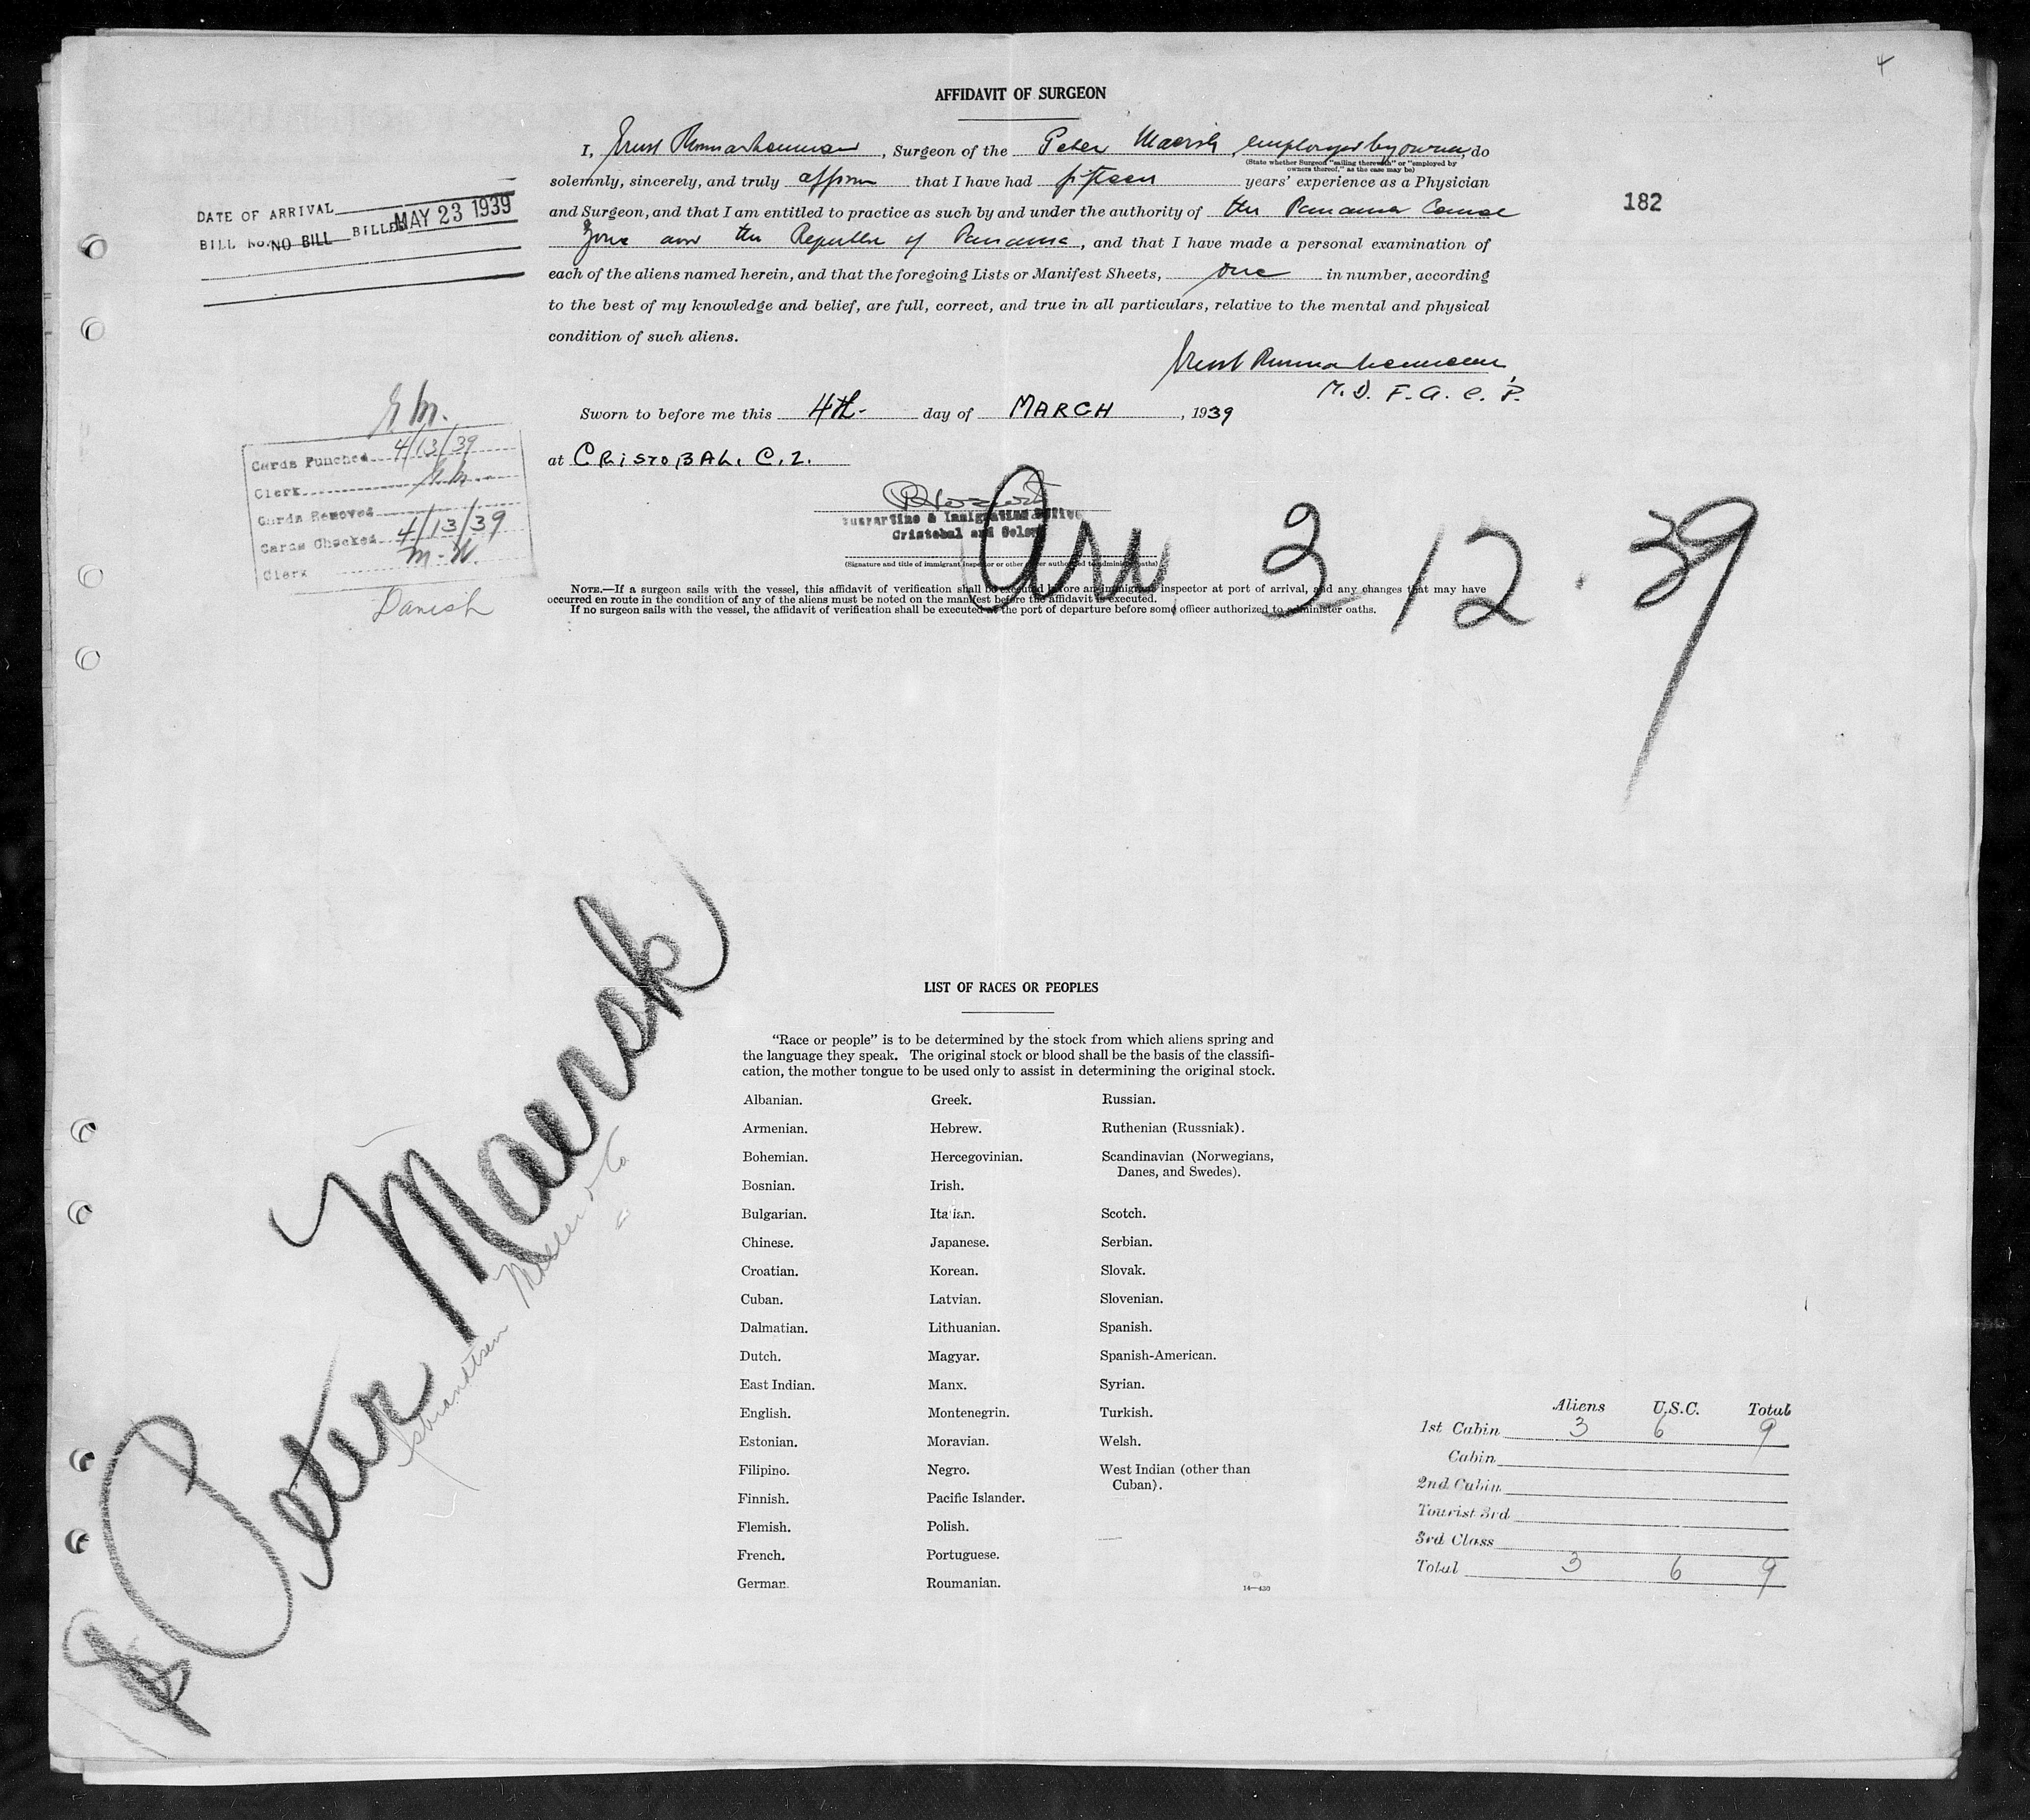 4
AFFIDAVIT OF SURGEON
I, , Surgeon of the Peter Maersk, employed by owner, do
(State whether Surgeon "sailing therewith" or "employed by
owners thereof," as the case may be)
solemnly, sincerely, and truly affirm that I have had fifteen years' experience as a Physician
and Surgeon, and that I am entitled to practice as such by and under the authority of the Panama Canal
Zone and the Republic of Panama, and that I have made a personal examination of
each of the aliens named herein, and that the foregoing Lists or Manifest Sheets, one in number, according
to the best of my knowledge and belief, are full, correct, and true in all particulars, relative to the mental and physical
condition of such aliens.
M.D. F.A.C.P.
182
DATE OF ARRIVAL
BILL No. NO BILL BILLED MAY 23 1939
Sworn to before me this 4th day of MARCH, 1939
at CRISTOBAL, C.Z.
Quarantine & Immigration Office
Cristobal and Colon
(Signature and title of immigrant inspector or other officer authorized to administer oaths)
Cards Punched 4/13/39
Clerk
Cards Removed
Cards Checked 4/13/39
Clerk
Danish
Arr 3 12 39
NOTE.—If a surgeon sails with the vessel, this affidavit of verification shall be executed before an immigrant inspector at port of arrival, and any changes that may have
occurred en route in the condition of any of the aliens must be noted on the manifest before the affidavit is executed.
If no surgeon sails with the vessel, the affidavit of verification shall be executed at the port of departure before some officer authorized to administer oaths.
Peter Maersk
LIST OF RACES OR PEOPLES
"Race or people" is to be determined by the stock from which aliens spring and
the language they speak. The original stock or blood shall be the basis of the classifi-
cation, the mother tongue to be used only to assist in determining the original stock.
Albanian.
Armenian.
Bohemian.
Bosnian.
Bulgarian.
Chinese.
Croatian.
Cuban.
Dalmatian.
Dutch.
East Indian.
English.
Estonian.
Filipino.
Finnish.
Flemish.
French.
German.
Greek.
Hebrew.
Hercegovinian.
Irish.
Italian.
Japanese.
Korean.
Latvian.
Lithuanian.
Magyar.
Manx.
Montenegrin.
Moravian.
Negro.
Pacific Islander.
Polish.
Portuguese.
Roumanian.
Russian.
Ruthenian (Russniak).
Scandinavian (Norwegians,
Danes, and Swedes).
Scotch.
Serbian.
Slovak.
Slovenian.
Spanish.
Spanish-American.
Syrian.
Turkish.
Welsh.
West Indian (other than
Cuban).
14—430
Aliens U.S.C. Total
1st Cabin 3 6 9
Cabin
2nd Cabin
Tourist 3rd
3rd Class
Total 3 6 9